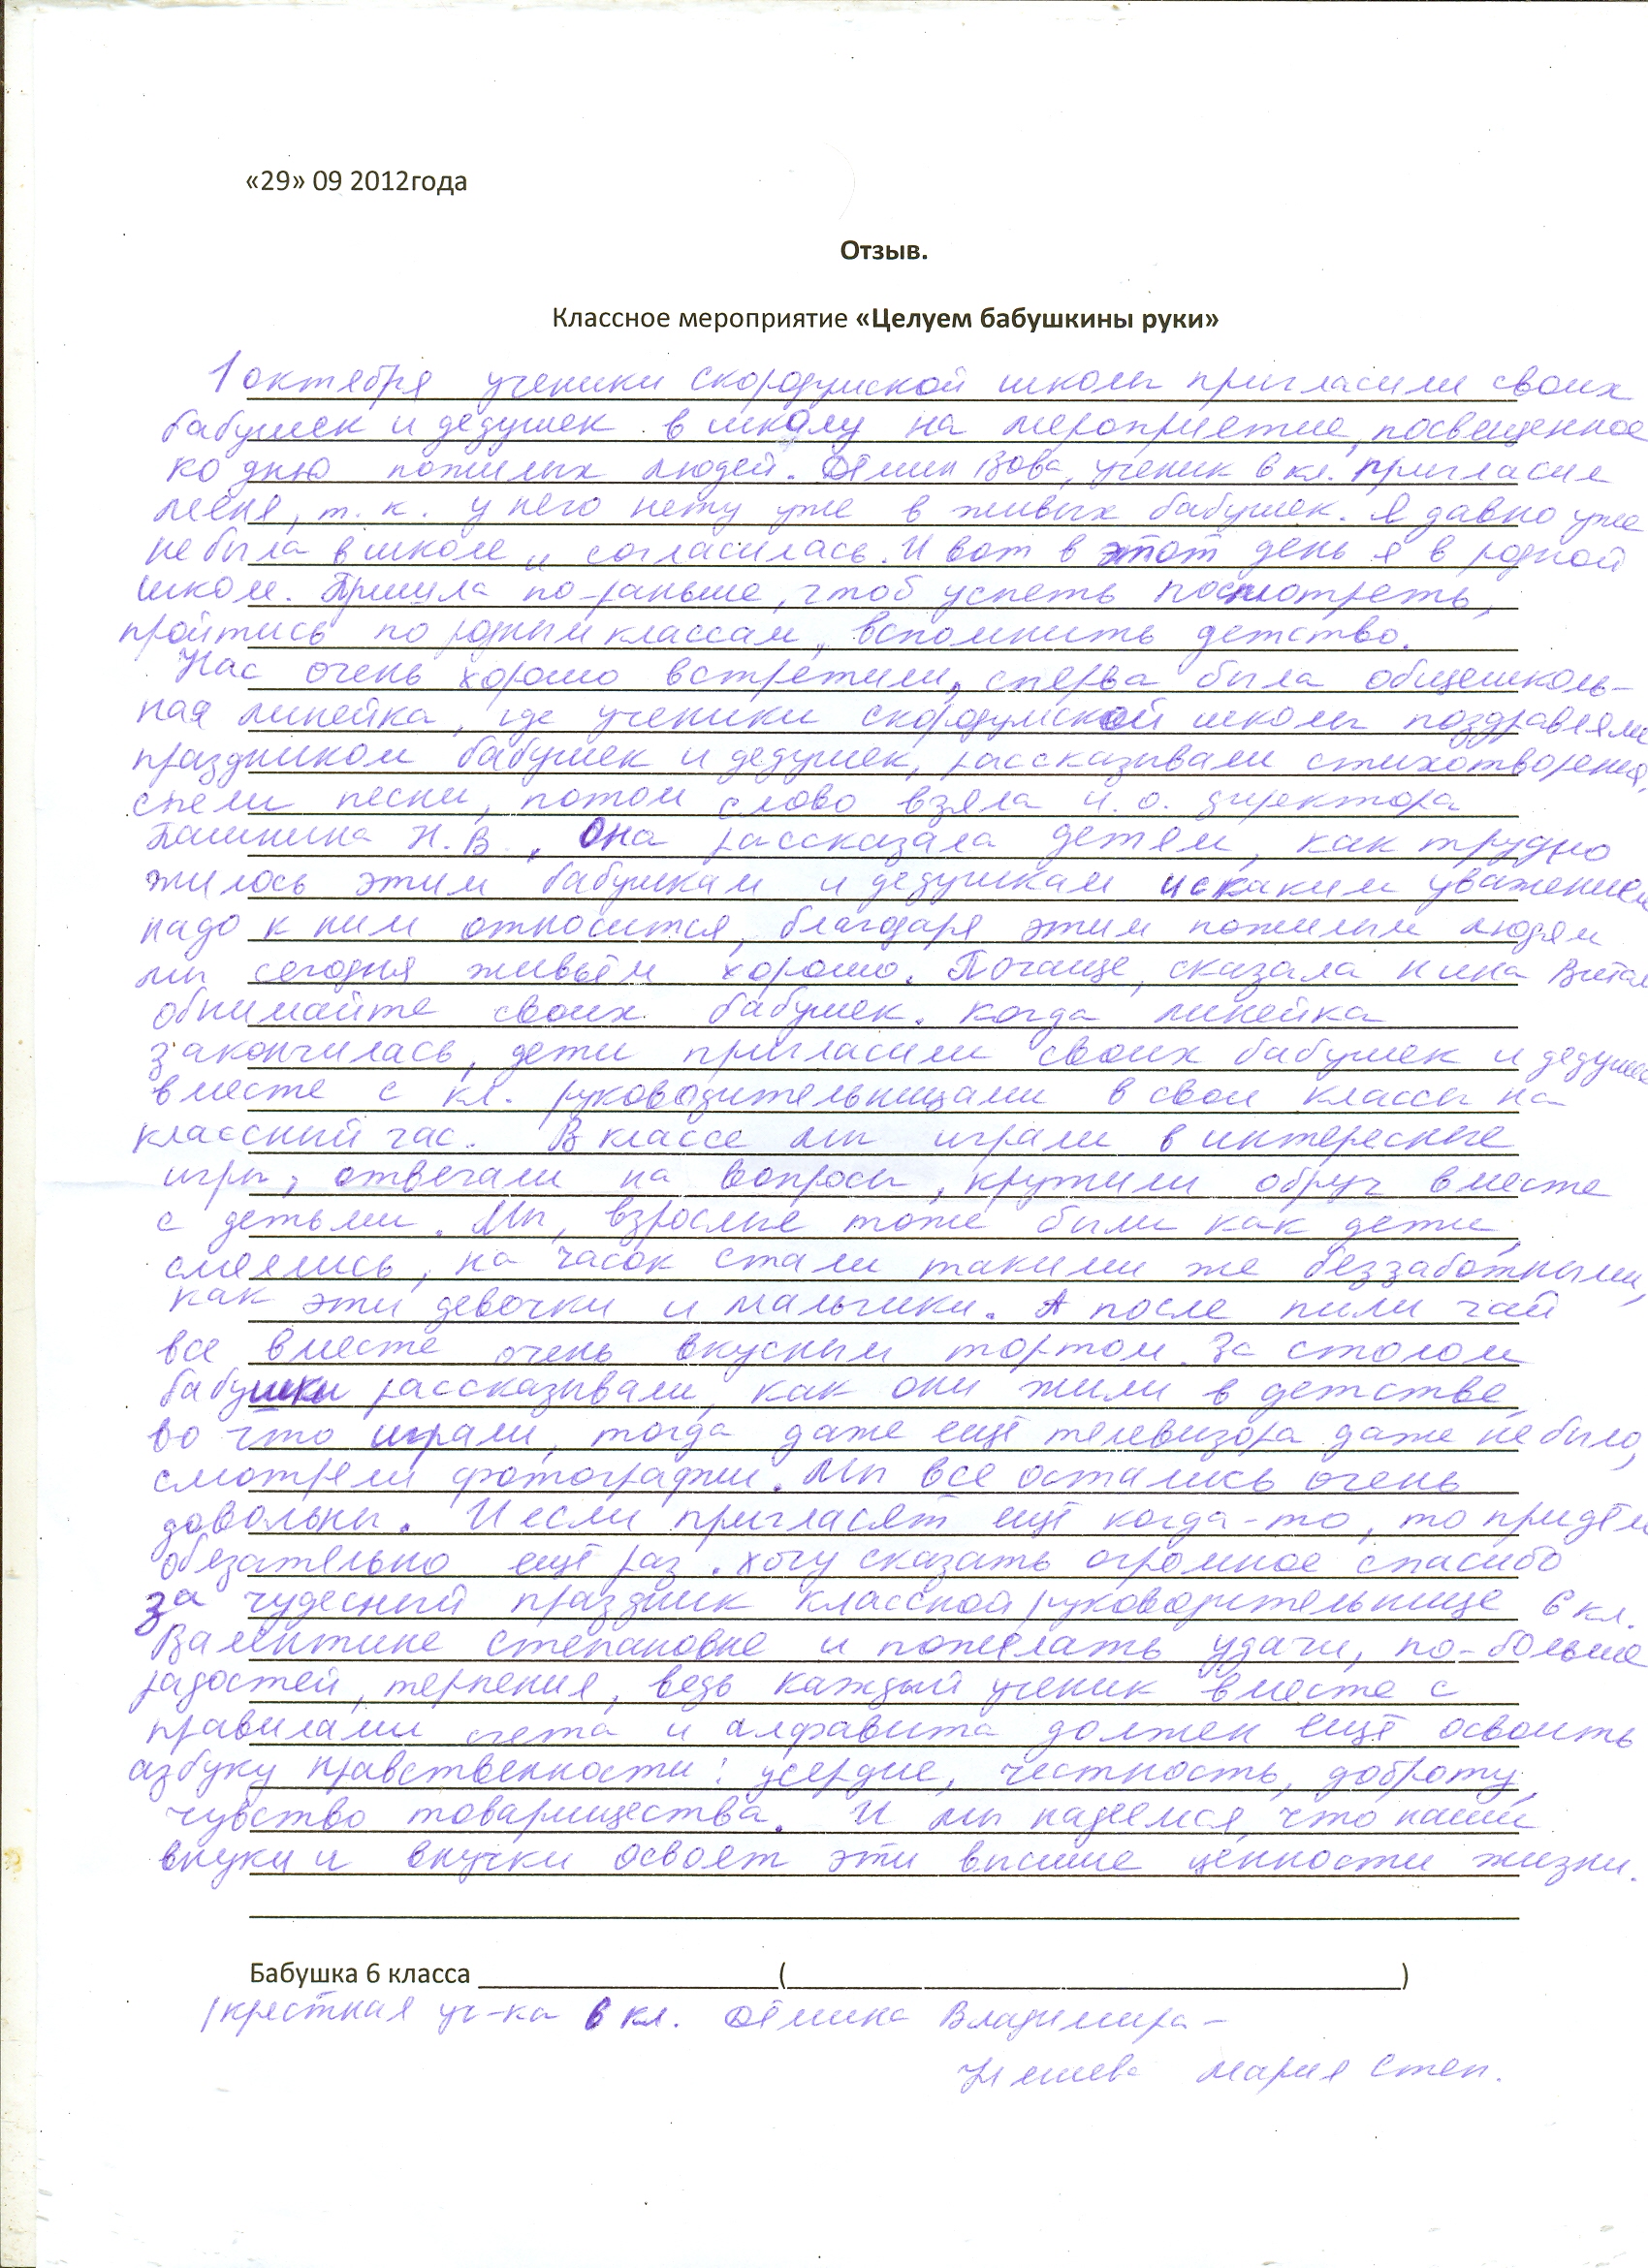 «29» 09 2012года
Отзыв.
Классное мероприятие «Целуем бабушкины руки»
1 октября ученики скородумской школы пригласили своих
бабушек и дедушек в школу на мероприятие, посвещенное
ко дню пожилых людей. Дёмин Вова, ученик 6 кл. пригласил
меня, т. к. у него нету уже в живых бабушек. Я давно уже
не была в школе и согласилась. И вот в этот день я в родной
школе. Пришла по-раньше, чтоб успеть посмотреть,
пройтись по родным классам, вспомнить детство.
Нас очень хорошо встретили, сперва была общешколь-
ная линейка, где ученики скородумской школы поздравляли
праздником бабушек и дедушек, рассказывали стихотворения,
спели песни, потом слово взяла и. о. директора
Н. В. Она рассказала детям, как трудно
жилось этим бабушкам и дедушкам и с каким уважением
надо к ним относится, благодаря этим пожилым людям
мы сегодня живьём хорошо. Почаще, сказала Нина Витал
обнимайте своих бабушек. Когда линейка
закончилась, дети пригласили своих бабушек и дедушек
вместе с кл. руководительницами в свои классы на
классный час. В классе мы играли в интересные
игры, отвечали на вопросы, крутили обруч вместе
с детьми. Мы, взрослые тоже были как дети,
смеялись, на часок стали такими же беззаботными,
как эти девочки и мальчики. А после пили чай
все вместе очень вкусным тортом. За столом
бабушки рассказывали, как они жили в детстве,
во что играли, тогда даже ещё телевизора даже не было,
смотрели фотографии. Мы все остались очень
довольны. И если пригласят ещё когда-то, то придём
обязательно ещё раз. Хочу сказать огромное спасибо
за чудесный праздник классной руководительнице 6 кл.
Валентине Степановне и пожелать удачи, по-больше
радостей, терпения, ведь каждый ученик вместе с
правилами счета и алфавита должен ещё освоить
азбуку нравственности: усердие, честность, доброту,
чувство товарищества. И мы надеемся, что наши
внуки и внучки освоят эти высшие ценности жизни.
Бабушка 6 класса ( )
/крестная уч-ка 6 кл. Дёмина Владимира –
Мария Степ.